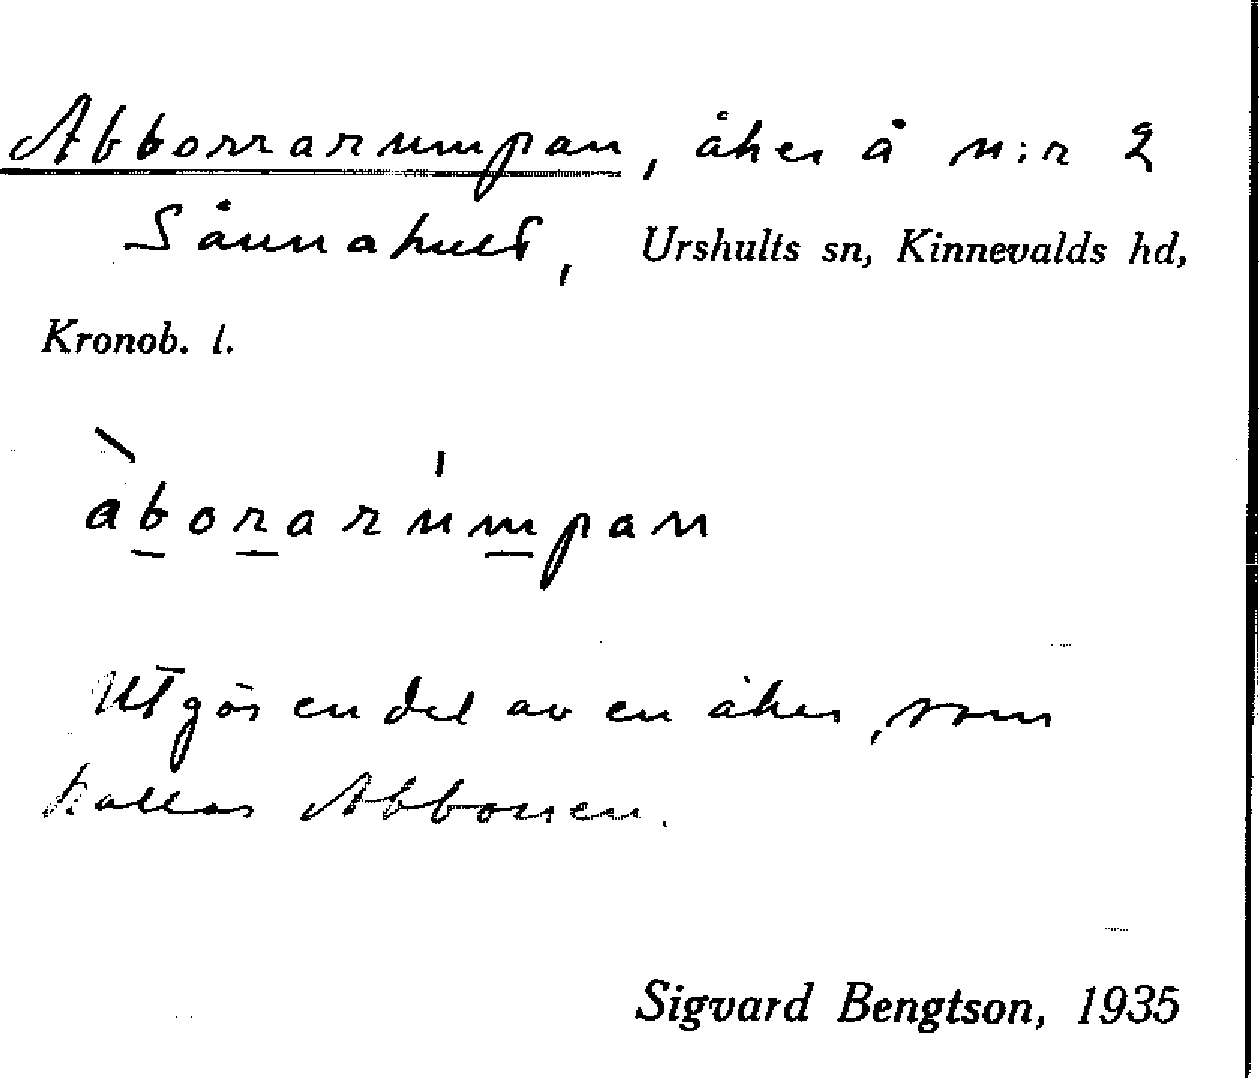 Abborrarumpan, åker å n:r 2
Sånnahult, Urshults sn, Kinnevalds hd,
Kronob. l.
àb̲or̲arúm̲pan
Utgör en del av en åker, som
kallas Abborren.
Sigvard Bengtson, 1935